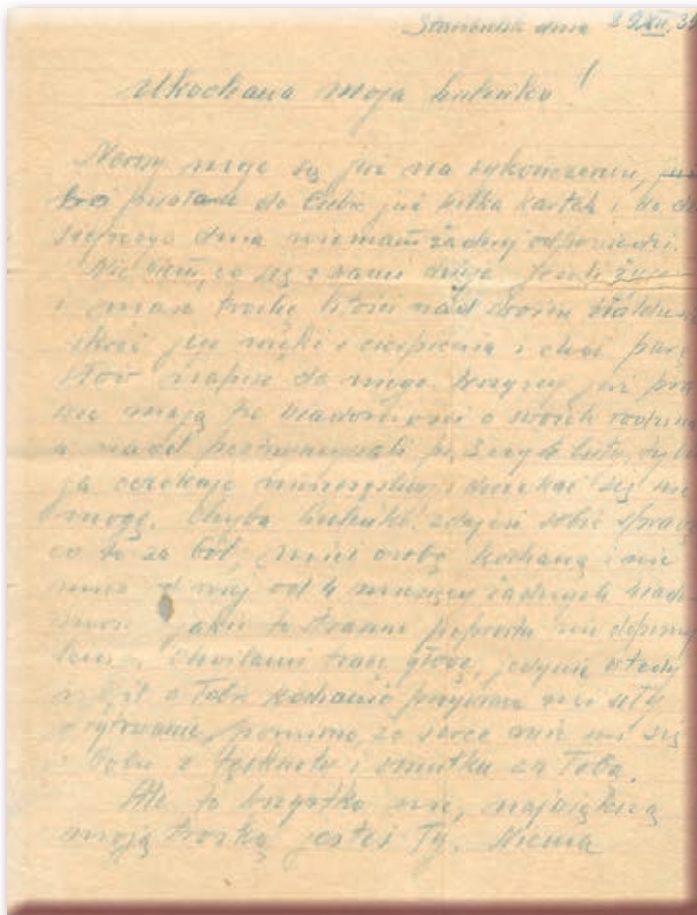 dnia 29 XII. 39
Ukochana moja Luluśko!
Nerwy moje są już na wykończeniu,
bo pisałem do Ciebie już kilka kartek i do dzi
siejszego dnia niemam żadnej odpowiedzi.
Nie wiem, co się z wami dzieje. Jeżeli żyjesz
i masz trochę litości nad swoim
skróć jego męki i cierpienia i choć parę
słów napisz do niego. Wszyscy już pra
wie mają wiadomości o swoich rodzinach
a nawet po 3 czy 4 listy, tylko
ja czekając i doczekać się nie
mogę. Chyba zdajesz sobie sprawę
co to za ból, mieć osobę kochaną i nie
mieć od niej od 4 miesięcy żadnych wiado
mości jakie to straszne poprostu nie
chwilami tracę głowę, jedynie wtedy
myśl o Tobie kochanie przywraca mi siły
pomimo, że serce rwie mi się
z bólu z tęsknoty i smutku za Tobą.
Ale to wszystko nic, największą
moją troską jesteś Ty. Niema